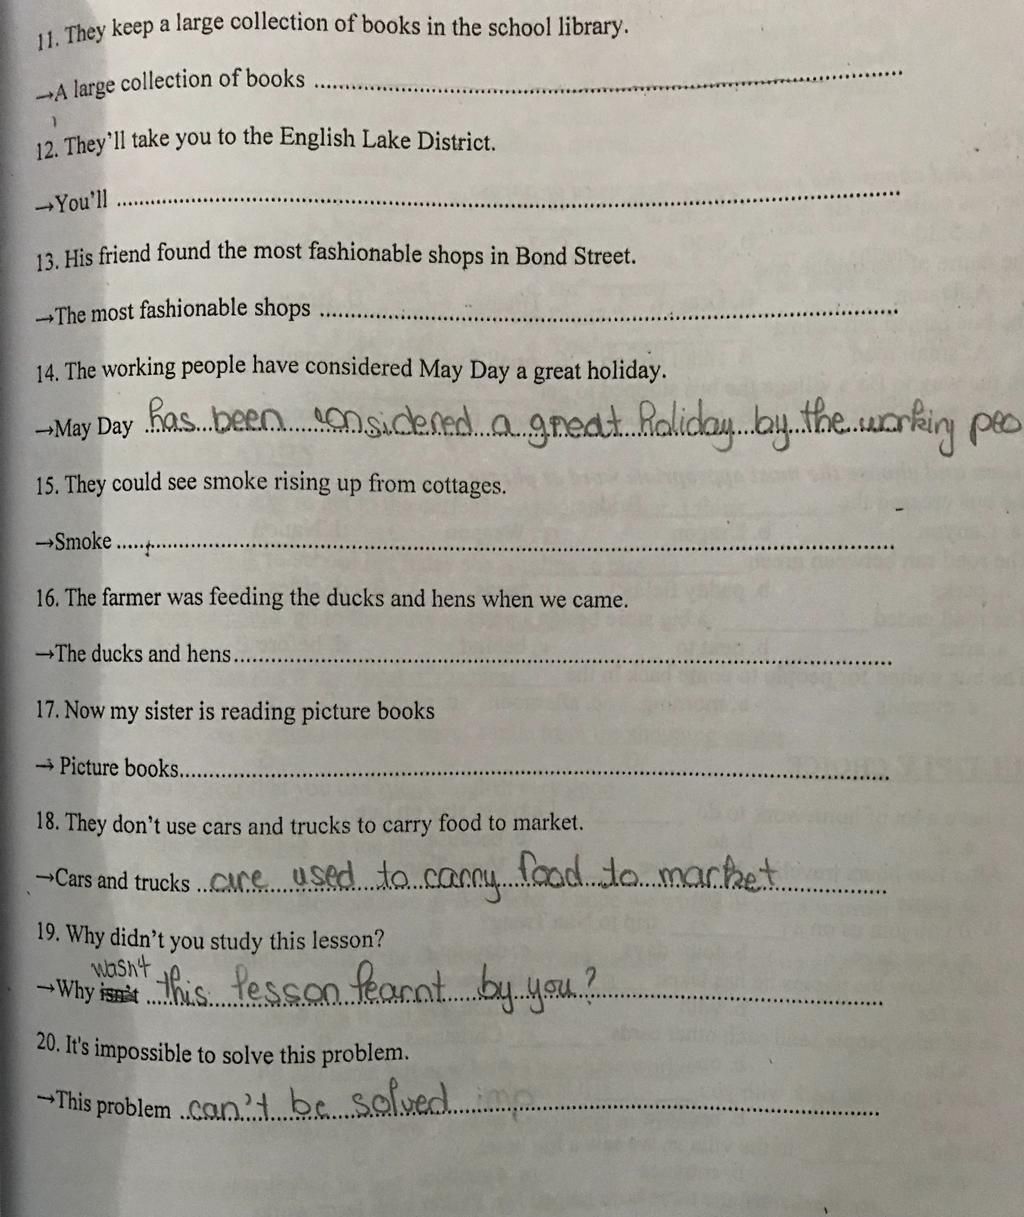 11. They keep a large collection of books in the school library.
→A large collection of books ........................................
12. They'll take you to the English Lake District.
→You'll ........................................
13. His friend found the most fashionable shops in Bond Street.
→The most fashionable shops ........................................
14. The working people have considered May Day a great holiday.
→May Day has been considered a great holiday by the working peo
15. They could see smoke rising up from cottages.
→Smoke ........................................
16. The farmer was feeding the ducks and hens when we came.
→The ducks and hens........................................
17. Now my sister is reading picture books
→ Picture books........................................
18. They don't use cars and trucks to carry food to market.
→Cars and trucks ..are used to carry food to market..........
19. Why didn't you study this lesson?
wasn't
→Why isn't ..this lesson learnt by you?....................
20. It's impossible to solve this problem.
→This problem ..can't be solved....imp....................